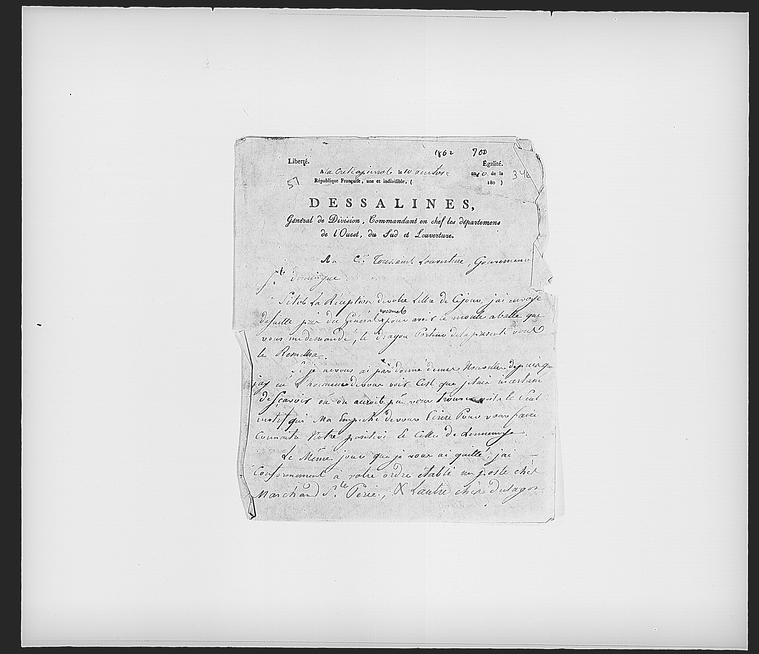 1802 700
Liberté. Égalité.
A la Crete a pierrot le 10 ventose an 10. de la
57 République Française, une et indivisible, ( 180 ) 346
DESSALINES,
Général de Division, Commandant en chef les départemens
de l'Ouest, du Sud et Louverture.
Au C.en Toussaint Louverture, Gouverneur
S.t Domingue
Sitot La Reception de votre Lettre de Cejour, j'ai envoyé
desuitte du Général vernet pour avoir le moule a balle que
vous me demandé, le Dragon Porteur de la presente vous
le Remettra.
Si je ne vous ai pas donné de mes Nouvelles depuis que
jay eu L'honneur de vous voir C'est que j'etais incertain
de sçavoir où on auroit pu vous trouver voila le Seul
motif qui Ma Empeché de vous Ecrire Pour vous faire
Connoitre Notre position et Celle de Lennemy.
Le Même jour que je vous ai quitté j'ai
Conformement à votre ordre établi un poste chez
Marchand, & Lautre chéz